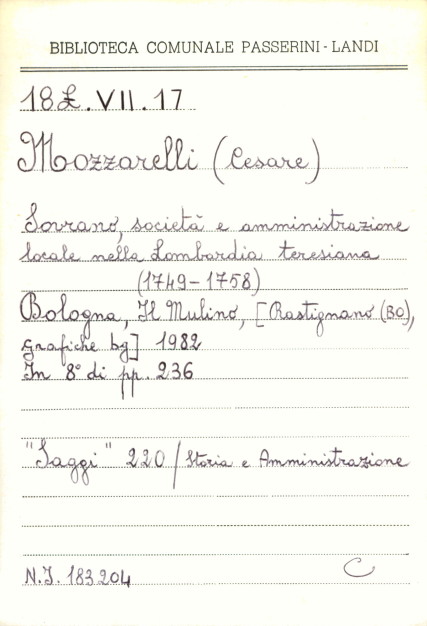 BIBLIOTECA COMUNALE PASSERINI - LANDI
18Ł.VII.17
Mozzarelli (Cesare)
Sovrano, società e amministrazione
locale nella Lombardia teresiana
(1749-1758)
Bologna, Il Mulino, [Rastignano (BO),
grafiche bg] 1982
In 8° di pp. 236
"Saggi" 220 / Storia e Amministrazione
N.I. 183204
C